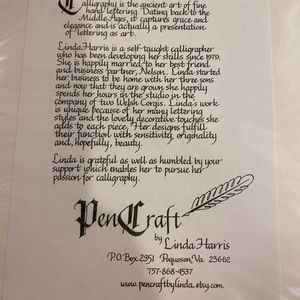 Calligraphy is the ancient art of fine
hand lettering. Dating back to the
Middle Ages, it captures grace and
elegance and is actually a presentation
of lettering as art.
Linda Harris is a self-taught calligrapher
who has been developing her skills since 1979.
She is happily married to her best friend
and business partner, Nelson. Linda started
her business to be home with her three sons
and now that they are grown she happily
spends her hours in the studio in the
company of two Welsh Corgis. Linda's work
is unique because of her many lettering
styles and the lovely decorative touches she
adds to each piece. Her designs fulfill
their function with sensitivity, originality
and, hopefully, beauty.
Linda is grateful as well as humbled by your
support which enables her to pursue her
passion for calligraphy.
PenCraft
by Linda Harris
P.O. Box 2951 Poquoson, Va. 23662
757-868-4537
www.pencraftbylinda.etsy.com